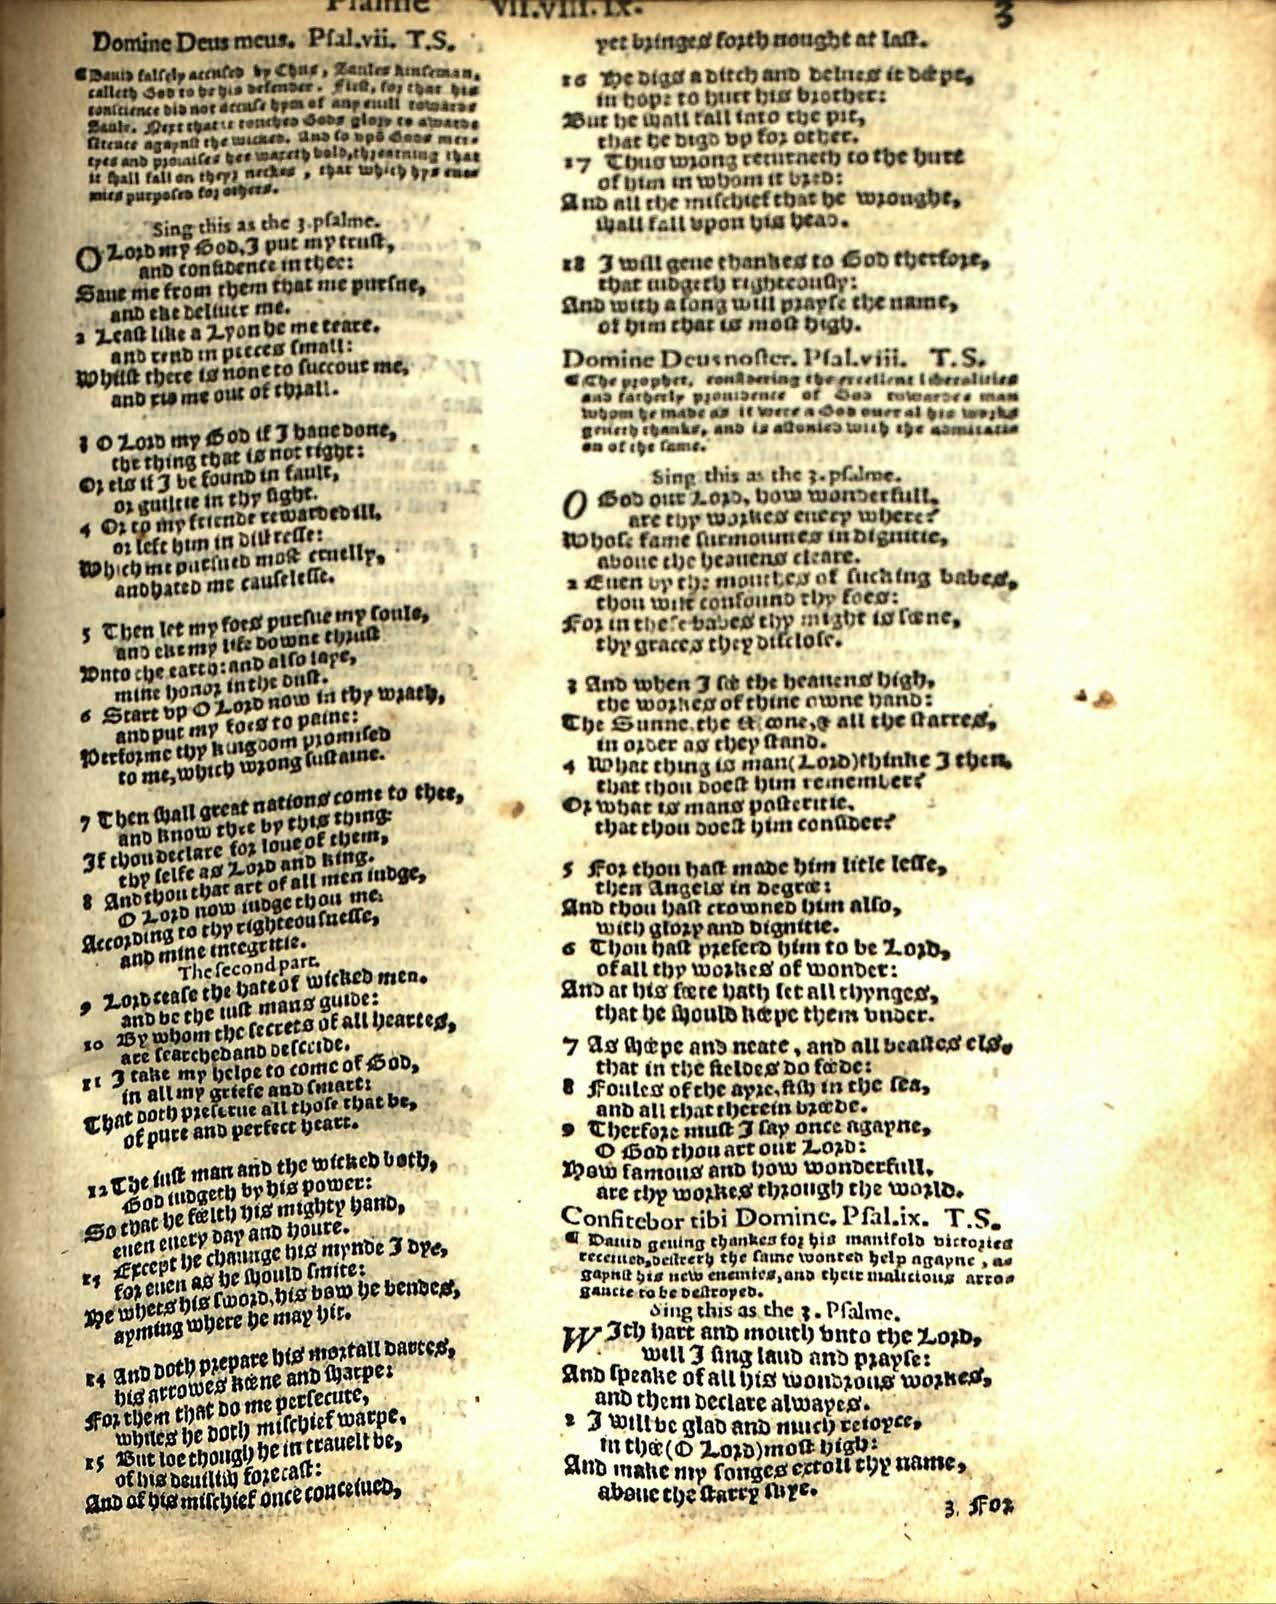 Psalme VII.viii.ix. 3
Domine Deus meus. Psal.vii. T.S.
¶ Dauid falsely accused by Chus, Saules kinseman,
calleth God to be his defender. First, for that his
conscience did not accuse hym of any euill towards
Saule. Next that it touched Gods glory to awarde
sitence agaynst the wicked. And so vpō Gods mer-
cyes and promises hee waxeth bold, threatning that
it shall fall on theyr neckes, that which hys ene-
mies purposed for others.
Sing this as the 3. psalme.
O Lord my God, I put my trust,
and confidence in thee:
Saue me from them that me pursue,
and eke deliuer me.
2 Least like a Lyon he me teare.
and rend in pieces small:
Whilst there is none to succour me,
and rid me out of thrall.
3 O Lord my God if I haue done,
the thing that is not right:
Or els if I be found in fault,
or guiltie in thy sight.
4 Or to my friende rewarded ill,
or left him in distresse:
Which me pursued most cruelly,
and hated me causelesse.
5 Then let my foes pursue my soule,
and eke my life downe thrust
Vnto the earth: and also laye,
mine honor in the dust.
6 Start vp O Lord now in thy wrath,
and put my foes to paine:
Performe thy kingdom promised
to me, which wrong sustaine.
7 Then shall great nations come to thee,
and know thee by this thing:
If thou declare for loue of them,
thy selfe as Lord and king.
8 And thou that art of all men iudge,
O Lord now iudge thou me.
According to thy righteousnesse,
and mine integritie.
The second part.
9 Lord cease the hate of wicked men.
and be the iust mans guide:
10 By whom the secrets of all heartes,
are searched and descride.
11 I take my helpe to come of God,
in all my griefe and smart:
That doth preserue all those that be,
of pure and perfect heart.
12 The iust man and the wicked both,
God iudgeth by his power:
So that he fœlth his mighty hand,
euen euery day and houre.
13 Except he chaunge his mynde I dye,
for euen as he should smite:
He whets his sword, his bow he bendes,
ayming where he may hit.
14 And doth prepare his mortall dartes,
his arrowes kœne and sharpe:
For them that do me persecute,
whiles he doth mischief warpe.
15 But loe though he in trauell be,
of his deuillish forecast:
And of his mischief once conceiued,
yet bringes forth nought at last.
16 He digs a ditch and delues it dœpe,
in hope to hurt his brother:
But he shall fall into the pit,
that he digd vp for other.
17 Thus wrong returneth to the hurt
of him in whom it bred:
And all the mischief that he wrought,
shall fall vpon his head.
18 I will geue thankes to God therfore,
that iudgeth righteously:
And with a song will prayse the name,
of him that is most high.
Domine Deus noster. Psal.viii. T.S.
¶ The prophet, considering the excellent liberalities
and fatherly prouidence of God towardes man
whom he made as it were a God ouer al his works
geueth thanks, and is astonied with the admiratio
on of the same.
Sing this as the 3. psalme.
O God our Lord, how wonderfull.
are thy workes euery where?
Whose fame surmountes in dignitie,
aboue the heauens cleare.
2 Euen by the mouthes of sucking babes,
thou wilt confound thy foes:
For in these babes thy might is sœne,
thy graces they disclose.
3 And when I sœ the heauens high,
the workes of thine owne hand:
The Sunne, the Mœone, & all the starres,
in order as they stand.
4 What thing is man (Lord) thinke I then,
that thou doest him remember?
Or what is mans posteritie.
that thou doest him consider?
5 For thou hast made him litle lesse,
then Angels in degrœ:
And thou hast crowned him also,
with glory and dignitie.
6 Thou hast preferd him to be Lord,
of all thy workes of wonder:
And at his fœte hath set all thynges,
that he should kœpe them vnder.
7 As shœpe and neate, and all beastes els,
that in the fieldes do fœde:
8 Foules of the ayre, fish in the sea,
and all that therein brœde.
9 Therfore must I say once agayne,
O God thou art our Lord:
How famous and how wonderfull,
are thy workes through the world.
Confitebor tibi Domine. Psal.ix. T.S.
¶ Dauid geuing thankes for his manifold victories
receiued, desireth the same wonted help agayne, as
gaynst his new enemies, and their malicious arro-
gancie to be destroyed.
Sing this as the 3. Psalme.
WIth hart and mouth vnto the Lord,
will I sing laud and prayse:
And speake of all his wondrous workes,
and them declare alwayes.
2 I will be glad and much reioyce,
in thœ (O Lord) most high:
And make my songes extoll thy name,
aboue the starry skye.
3. For